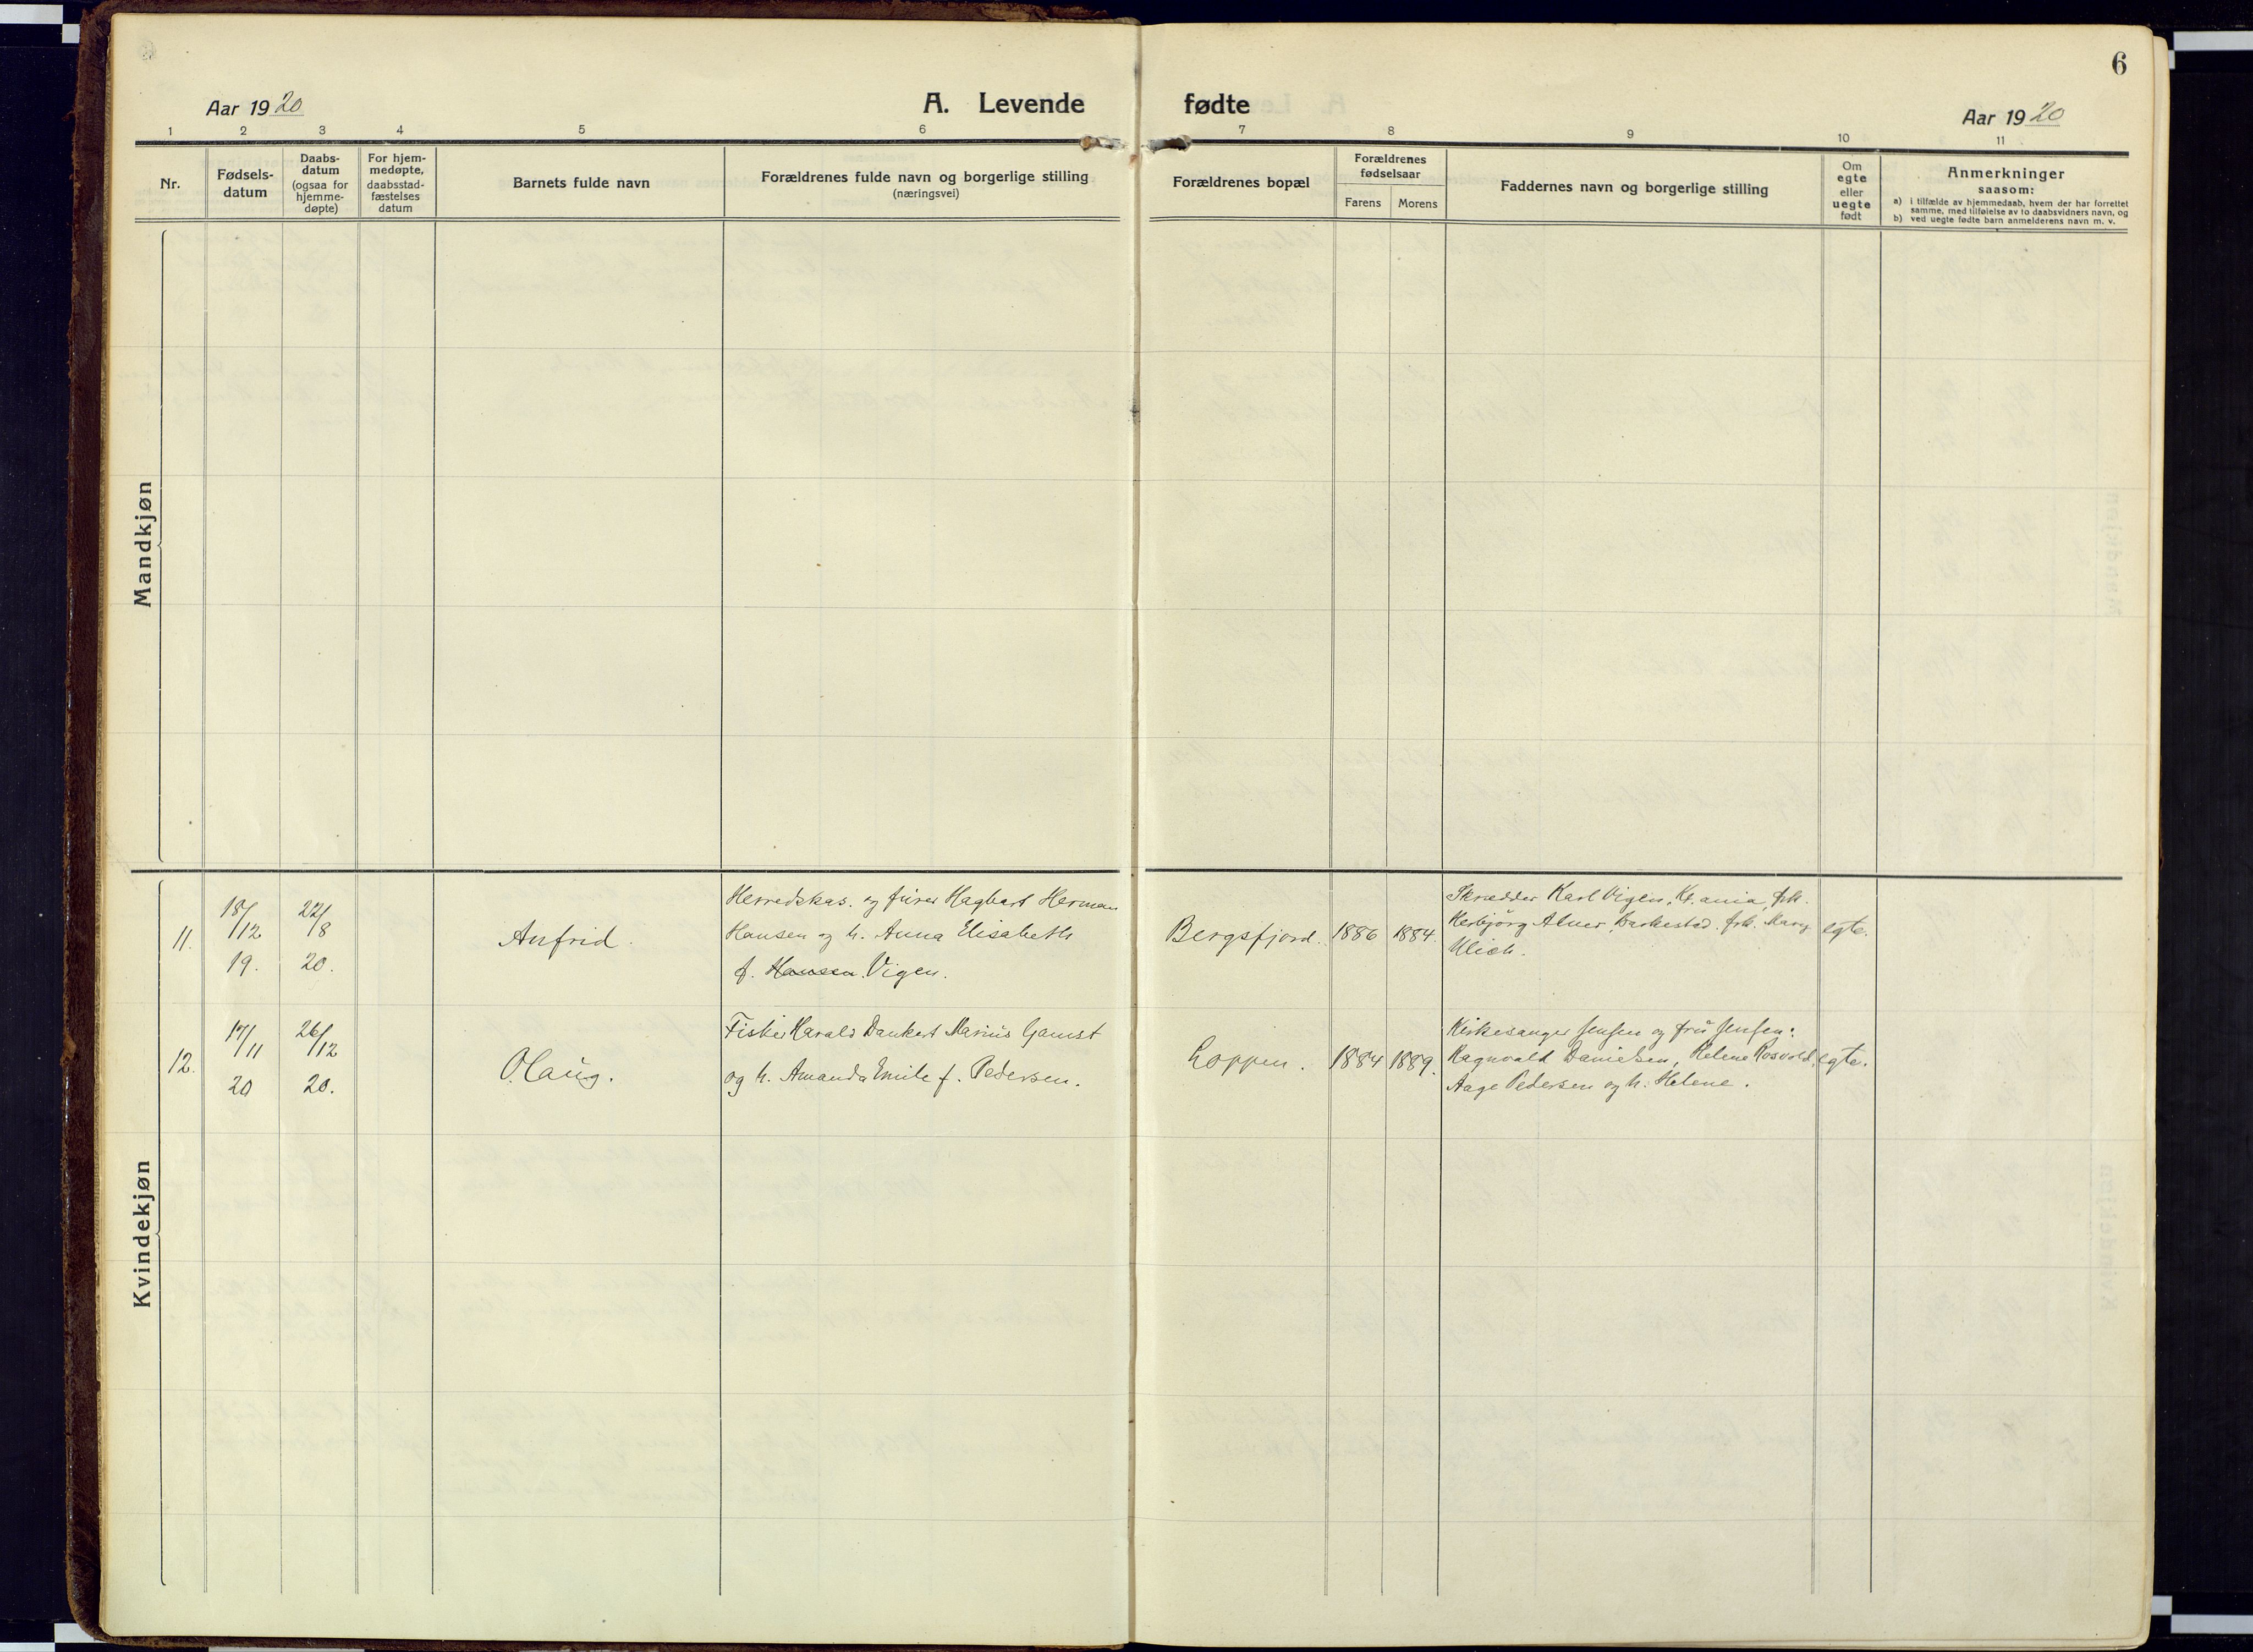 6
Aar 1920
A. Levende fødte
Aar 1920
1 2 3 4 5 6 7 8 9 10 11
Nr.
Fødsels-
datum
Daabs-
datum
(ogsaa for
hjemme-
døpte)
For hjem-
medøpte,
daabsstad-
fæstelses
datum
Barnets fulde navn
Forældrenes fulde navn og borgerlige stilling
(næringsvei)
Forældrenes bopæl
Forældrenes
fødselsaar
Farens Morens
Faddernes navn og borgerlige stilling
Om
egte
eller
uegte
født
Anmerkninger
saasom:
a) i tilfælde av hjemmedaab, hvem der har forrettet
samme, med tilføielse av to daabsvidners navn, og
b) ved uegte fødte barn anmelderens navn m. v.
Mandkjøn
Kvindekjøn
11.
18/12
19.
22/8
20.
Anfrid.
Herredskas. og Hagbart Herman
Hansen og h. Anna Elisabeth
f. Hansen. Vigen.
Bergsfjord.
1886
1884.
Skrædder Karl Vigen, Kr.ania, frk.
Herbjörg Alner, frk. Marg
Ulich.
egte.
12.
17/11
20
26/12
20.
Olaug.
Fisker Harald Dankert Marius Gamst
og h. Amanda Emile f. Pedersen.
Loppen.
1884
1889.
Kirkesanger Jensen og fru Jensen:
Ragnvald Danielsen, Helene Rosvold,
Aage Pedersen og h. Helene.
egte.